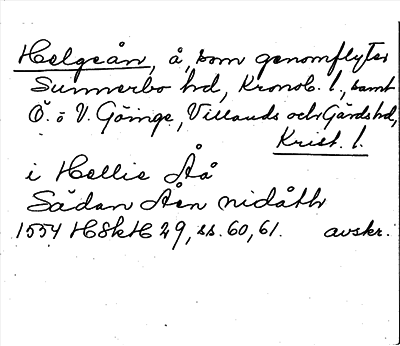 Helgeån, å, som genomflyter
Sunnerbo hd, Kronob. l., samt
Ö. o V. Göinge, Villands och Gärds hd,
Krist. l.
i Hellie Åå
Sådan Åen nidåth
1554 HSkH 29, ss. 60, 61. avskr.